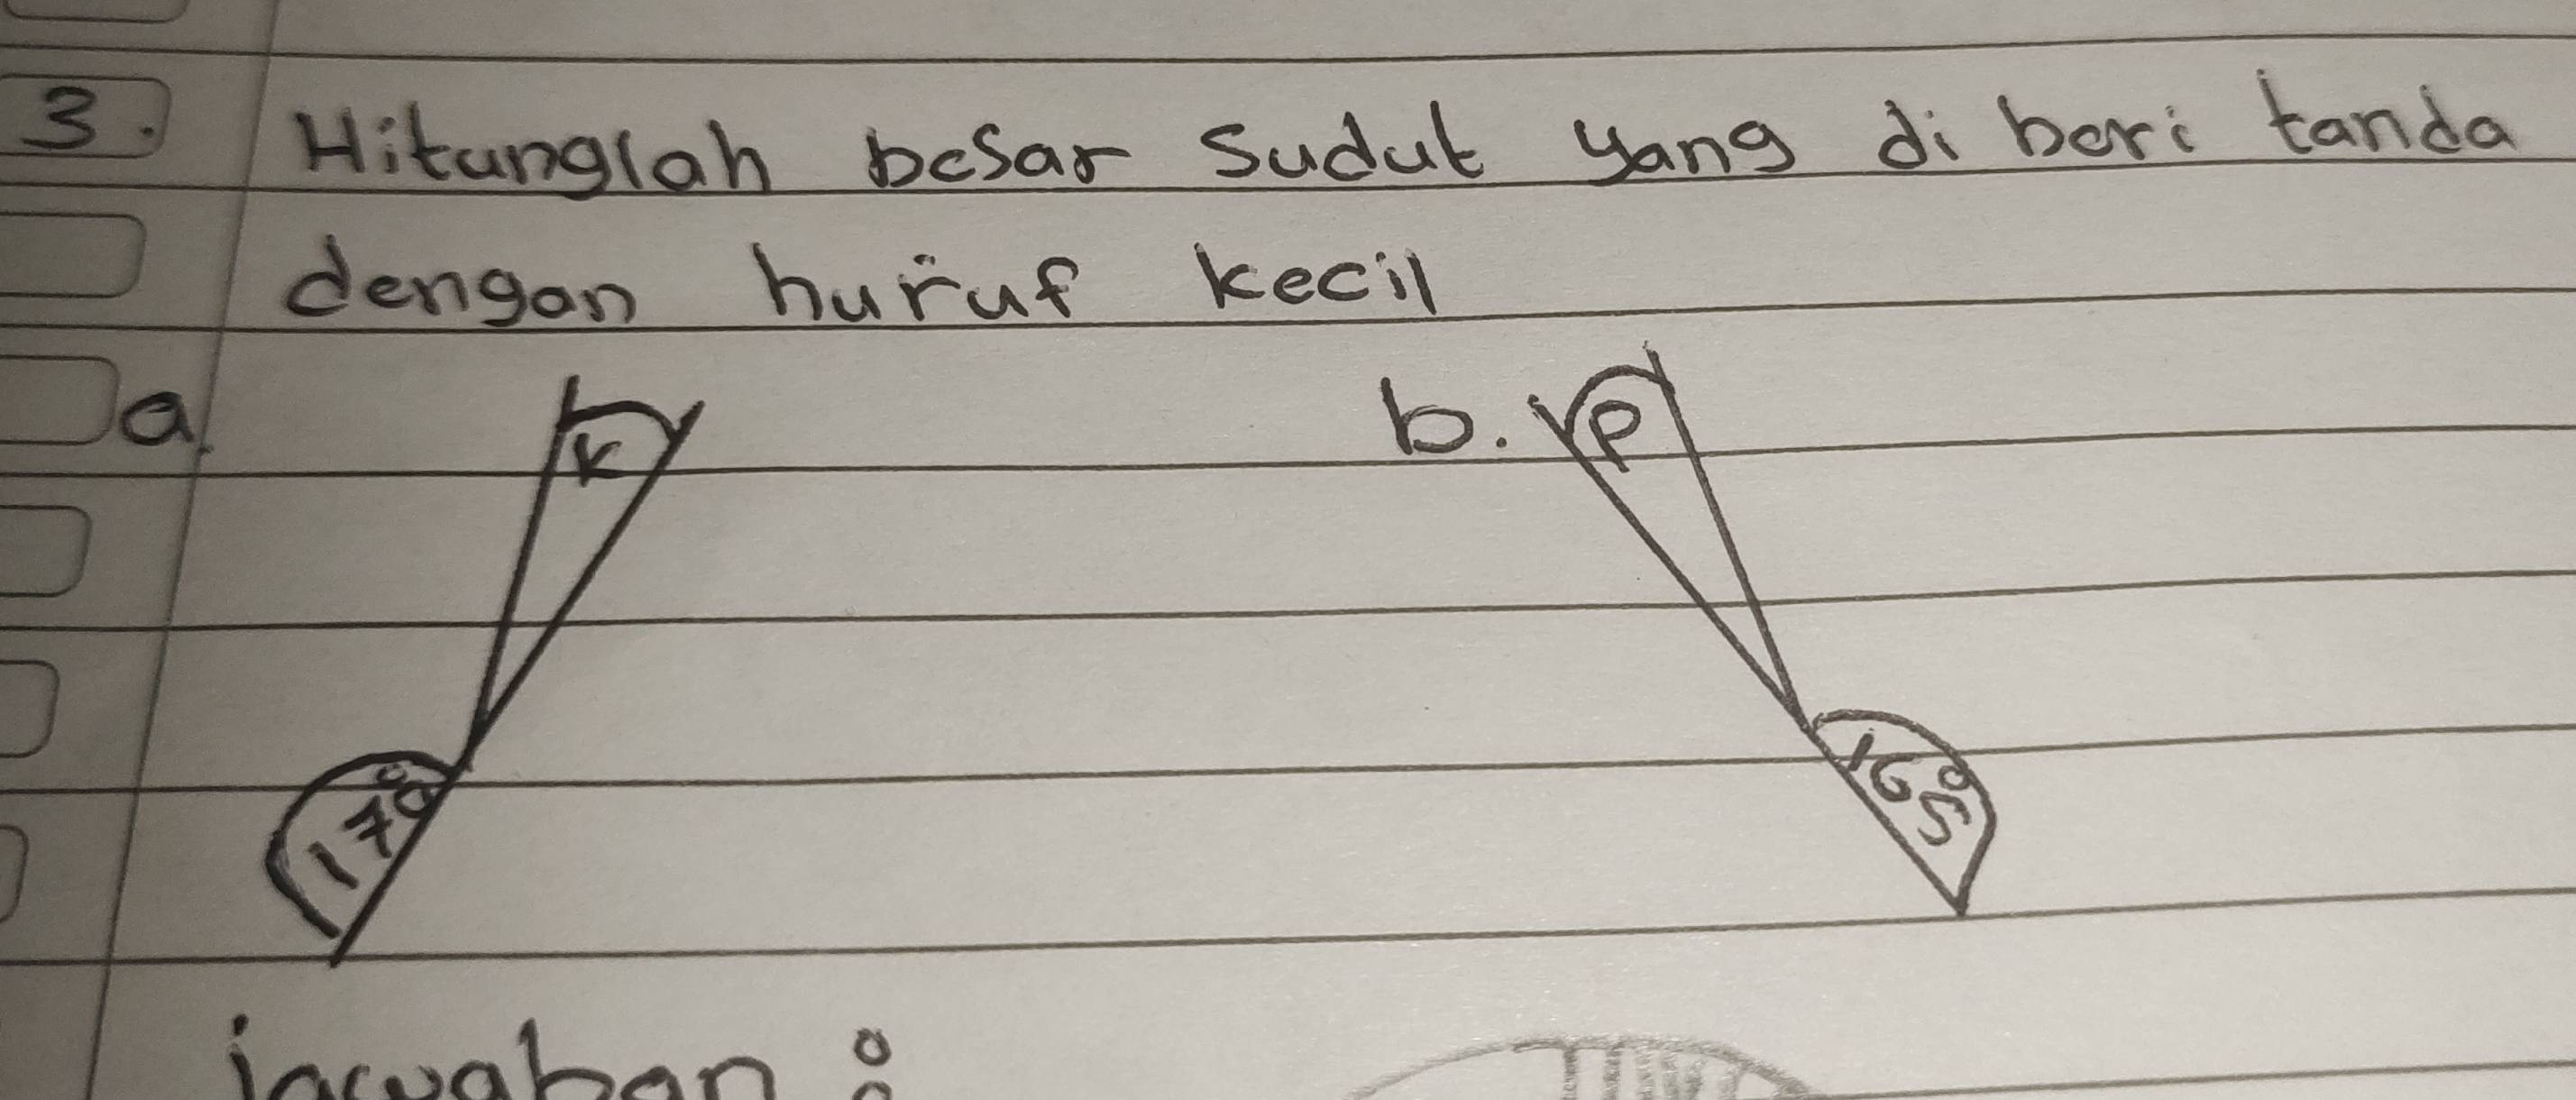 3. Hitunglah besar sudut yang di beri tanda
dengan huruf kecil
a.
k
170°
b.
p
165°
jawaban :